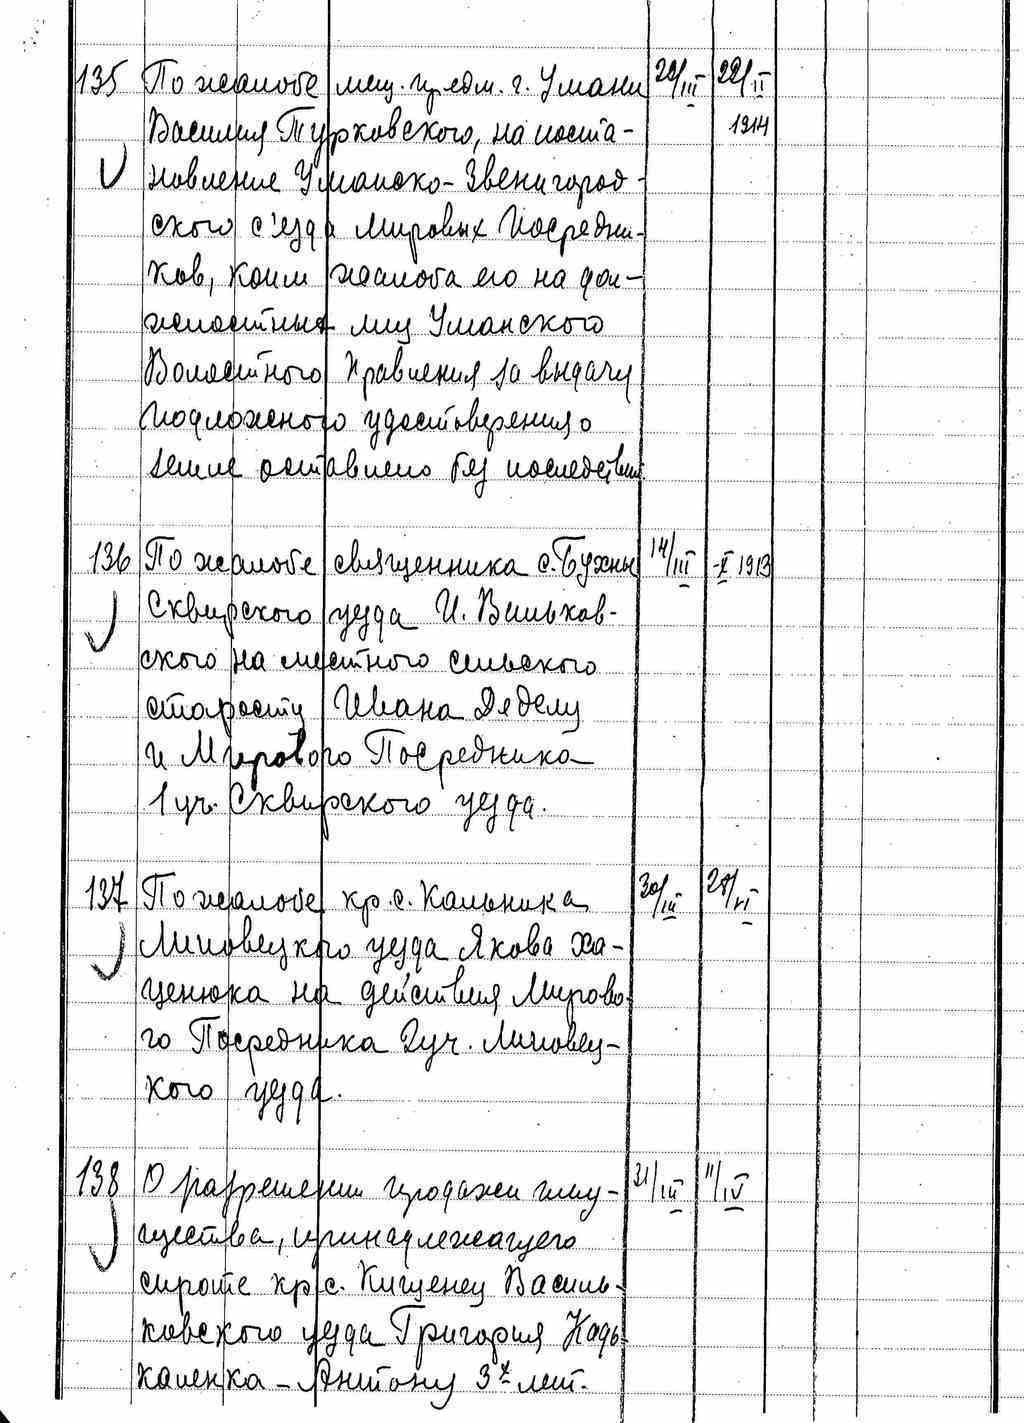 135 По жалобе мещ. предм. г. Умани 22/III 22/II
Василия Турковского, на поста- 1914
новление Уманско-Звенигород-
ского с'езда Мировых Посредни-
ков, коим жалоба его на дол-
жностных лиц Уманского
Волостного Правления за выдачу
подложного удостоверения о
земле оставлено без последствий.
136 По жалобе священника с. Бухны 14/III -X 1913
Сквирского уезда И. Вильков-
ского на местного сельского
старосту Ивана Дяделу
и Мирового Посредника
1 уч. Сквирского уезда.
137 По жалобе кр. с. Кальника 30/III 28/VI
Липовецкого уезда Якова Ха-
ценюка на действия Мирово-
го Посредника 2 уч. Липовец-
кого уезда.
138 О разрешении продажи иму- 31/III 11/IV
щества, принадлежащего
сироте кр. с. Кищенец Василь-
ковского уезда Григория
- Антону 3х лет.